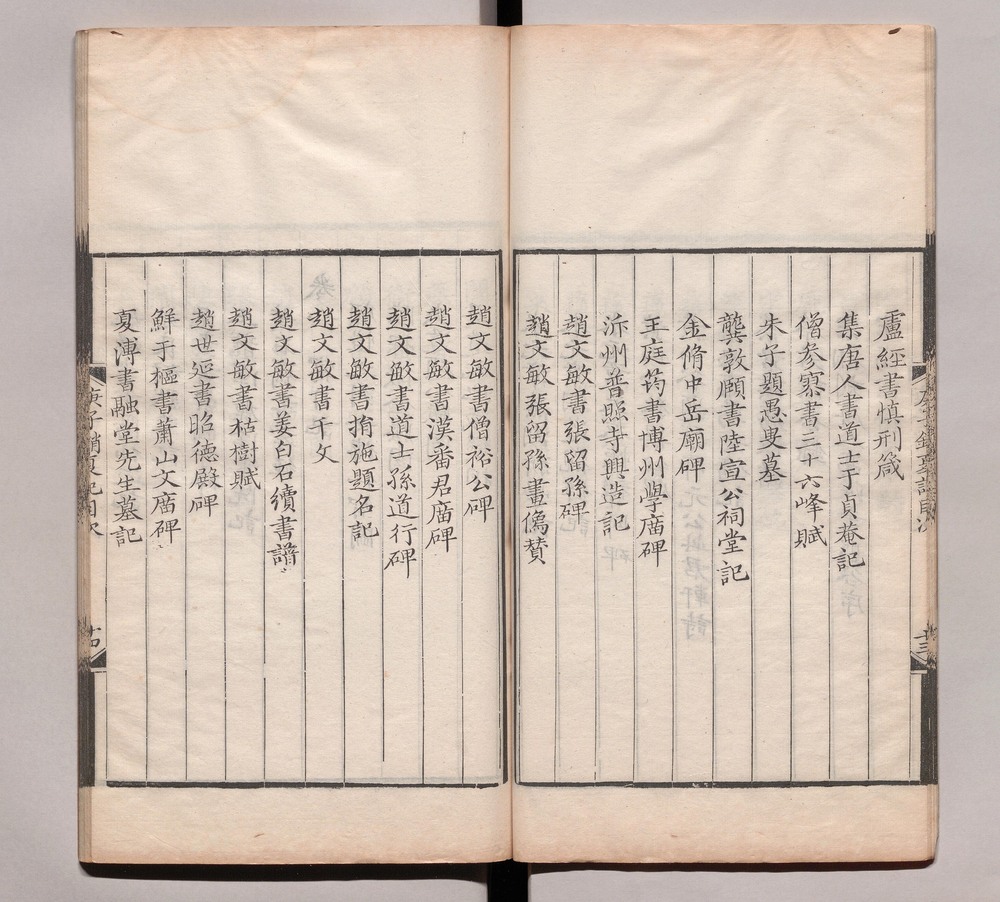 盧經書慎刑箴
集唐人書道士于貞菴記
僧參寥書三十六峰賦
朱子題愚叟墓
龔敦頤書陸宣公祠堂記
金脩中岳廟碑
王庭筠書博州學庿碑
沂州普照寺興造記
趙文敏書張留孫碑
趙文敏張留孫畫像贊
趙文敏書僧裕公碑
趙文敏書漢番君庿碑
趙文敏書道士孫道行碑
趙文敏書捎施題名記
趙文敏書千文
趙文敏書姜白石續書譜
趙文敏書枯樹賦
趙世延書昭德殿碑
鮮于樞書蕭山文庿碑
夏溥書融堂先生墓記